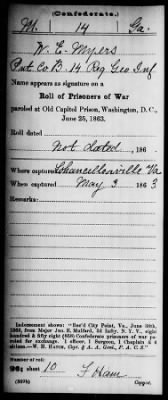 (Confederate.)
M. 14 Ga.
W. E. Myers
Pvt Co. B. 14 Reg Geo Inf
Name appears as signature on a
Roll of Prisoners of War
paroled at Old Capitol Prison, Washington, D. C.,
June 25, 1863.
Roll dated
Not Dated, 186
Where captured Chancellorville Va
When captured May 3 186 3
Remarks:
Indorsement shows: "Rec'd City Point, Va., June 30th,
1863, from Major Jno. E. Mulford, 3d Infty. N. Y. V., eight
hundred & fifty eight (858) Confederate prisoners of war
paroled for exchange. 1 officer, 1 Surgeon, 1 Chaplain & 4
citizens.—W. H. Hatch, Capt. & A. A. Genl., P. A. C. S."
Number of roll:
96; sheet 10 L Ham
Copyist.